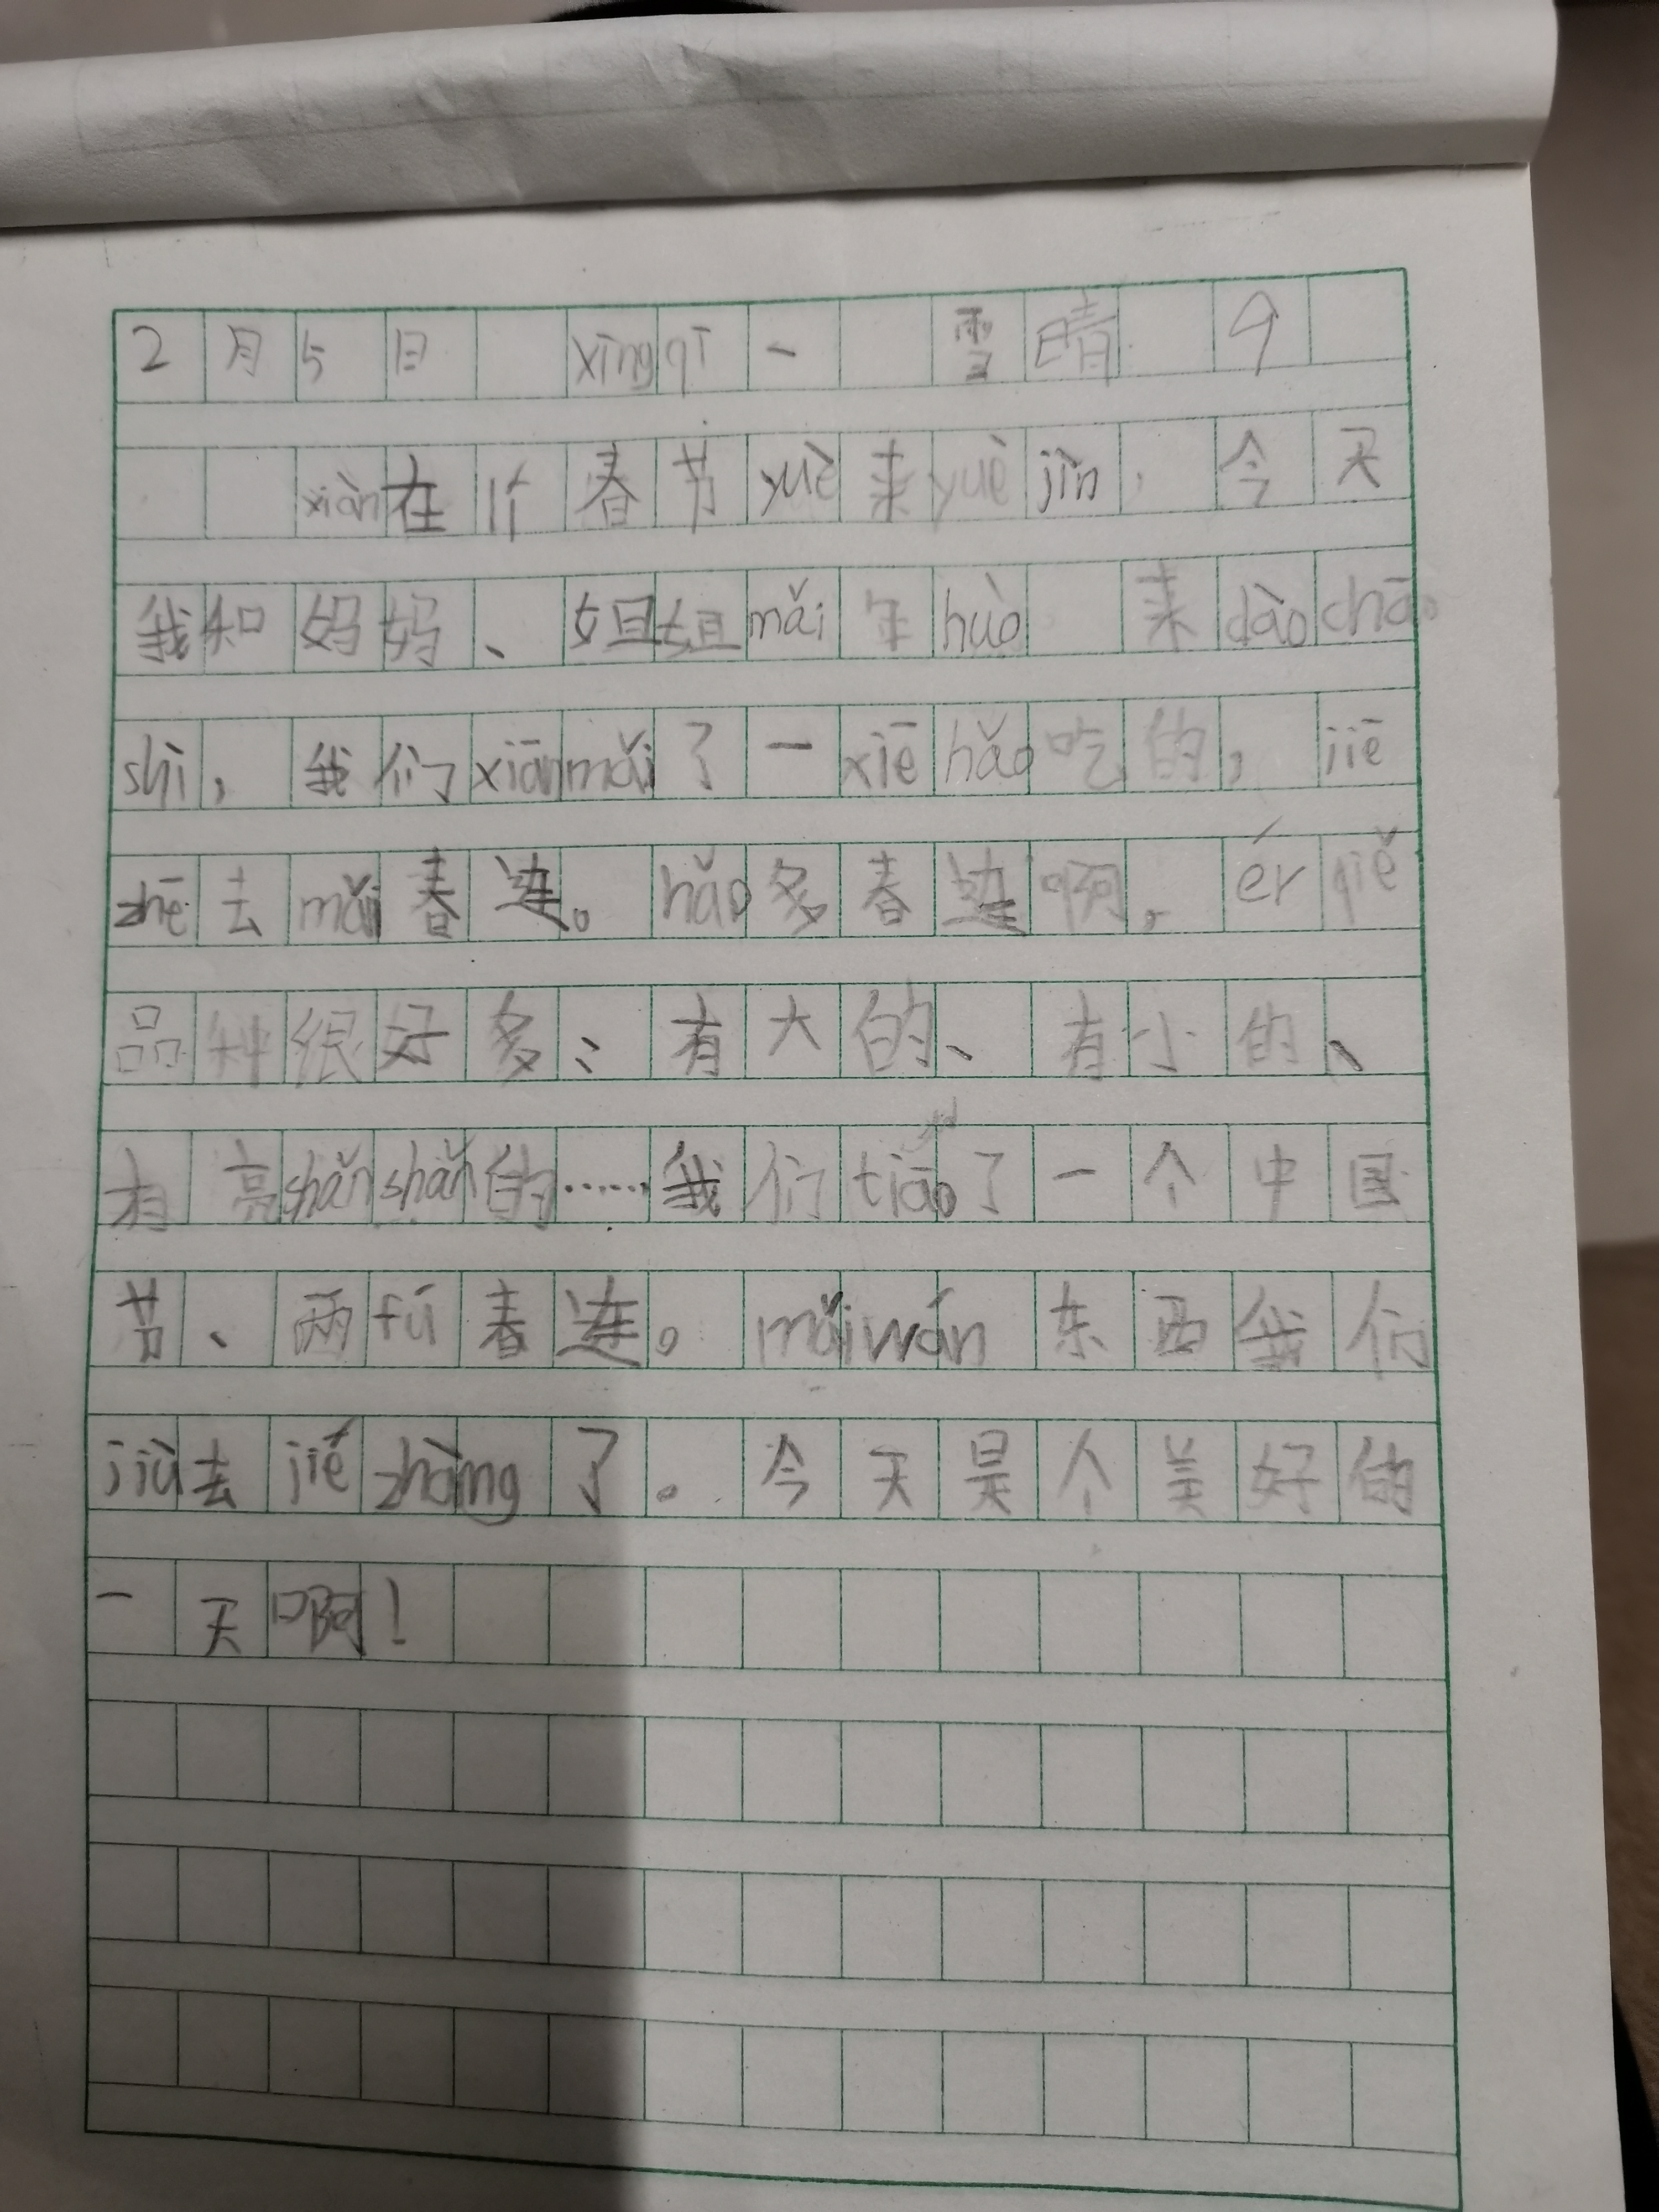 2月5日 xīngqī一 雪晴 9
xiàn在离春节yuè来yuè jìn,今天
我和妈妈、姐姐mǎi年huò 来dàochāo
shì,我们xiānmǎi了一xiē hǎo吃的,jiē
zhē去mǎi春连。hǎo多春连啊,ér qiě
品种很好多:有大的、有小的、
有亮shǎnshǎn的……我们tiāo了一个中国
节、两fú春连。mǎiwán东西我们
jiù去jiézhàng了。今天是个美好的
一天啊!